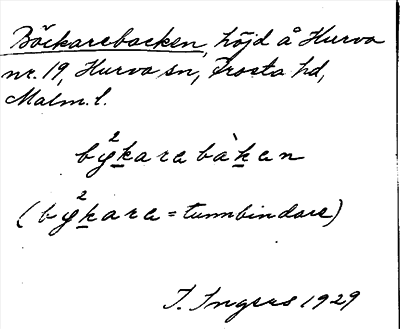 Böckarebacken, höjd å Hurva
nr. 19, Hurva sn, Frosta hd,
Malm. l.
by²k̲arabàk̲an
(by²k̲ara = tunnbindare)
I. Ingers 1929